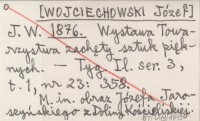 [WOJCIECHOWSKI Józef]
J. W. 1876. Wystawa Towa-
rzystwa zachęty sztuk pięk-
nych. – Tyg. Il. ser. 3,
t. 1, nr 23: 358.
M. in. obraz Józefa Jaro-
szyńskiego z Doliny Kościeliskiej.